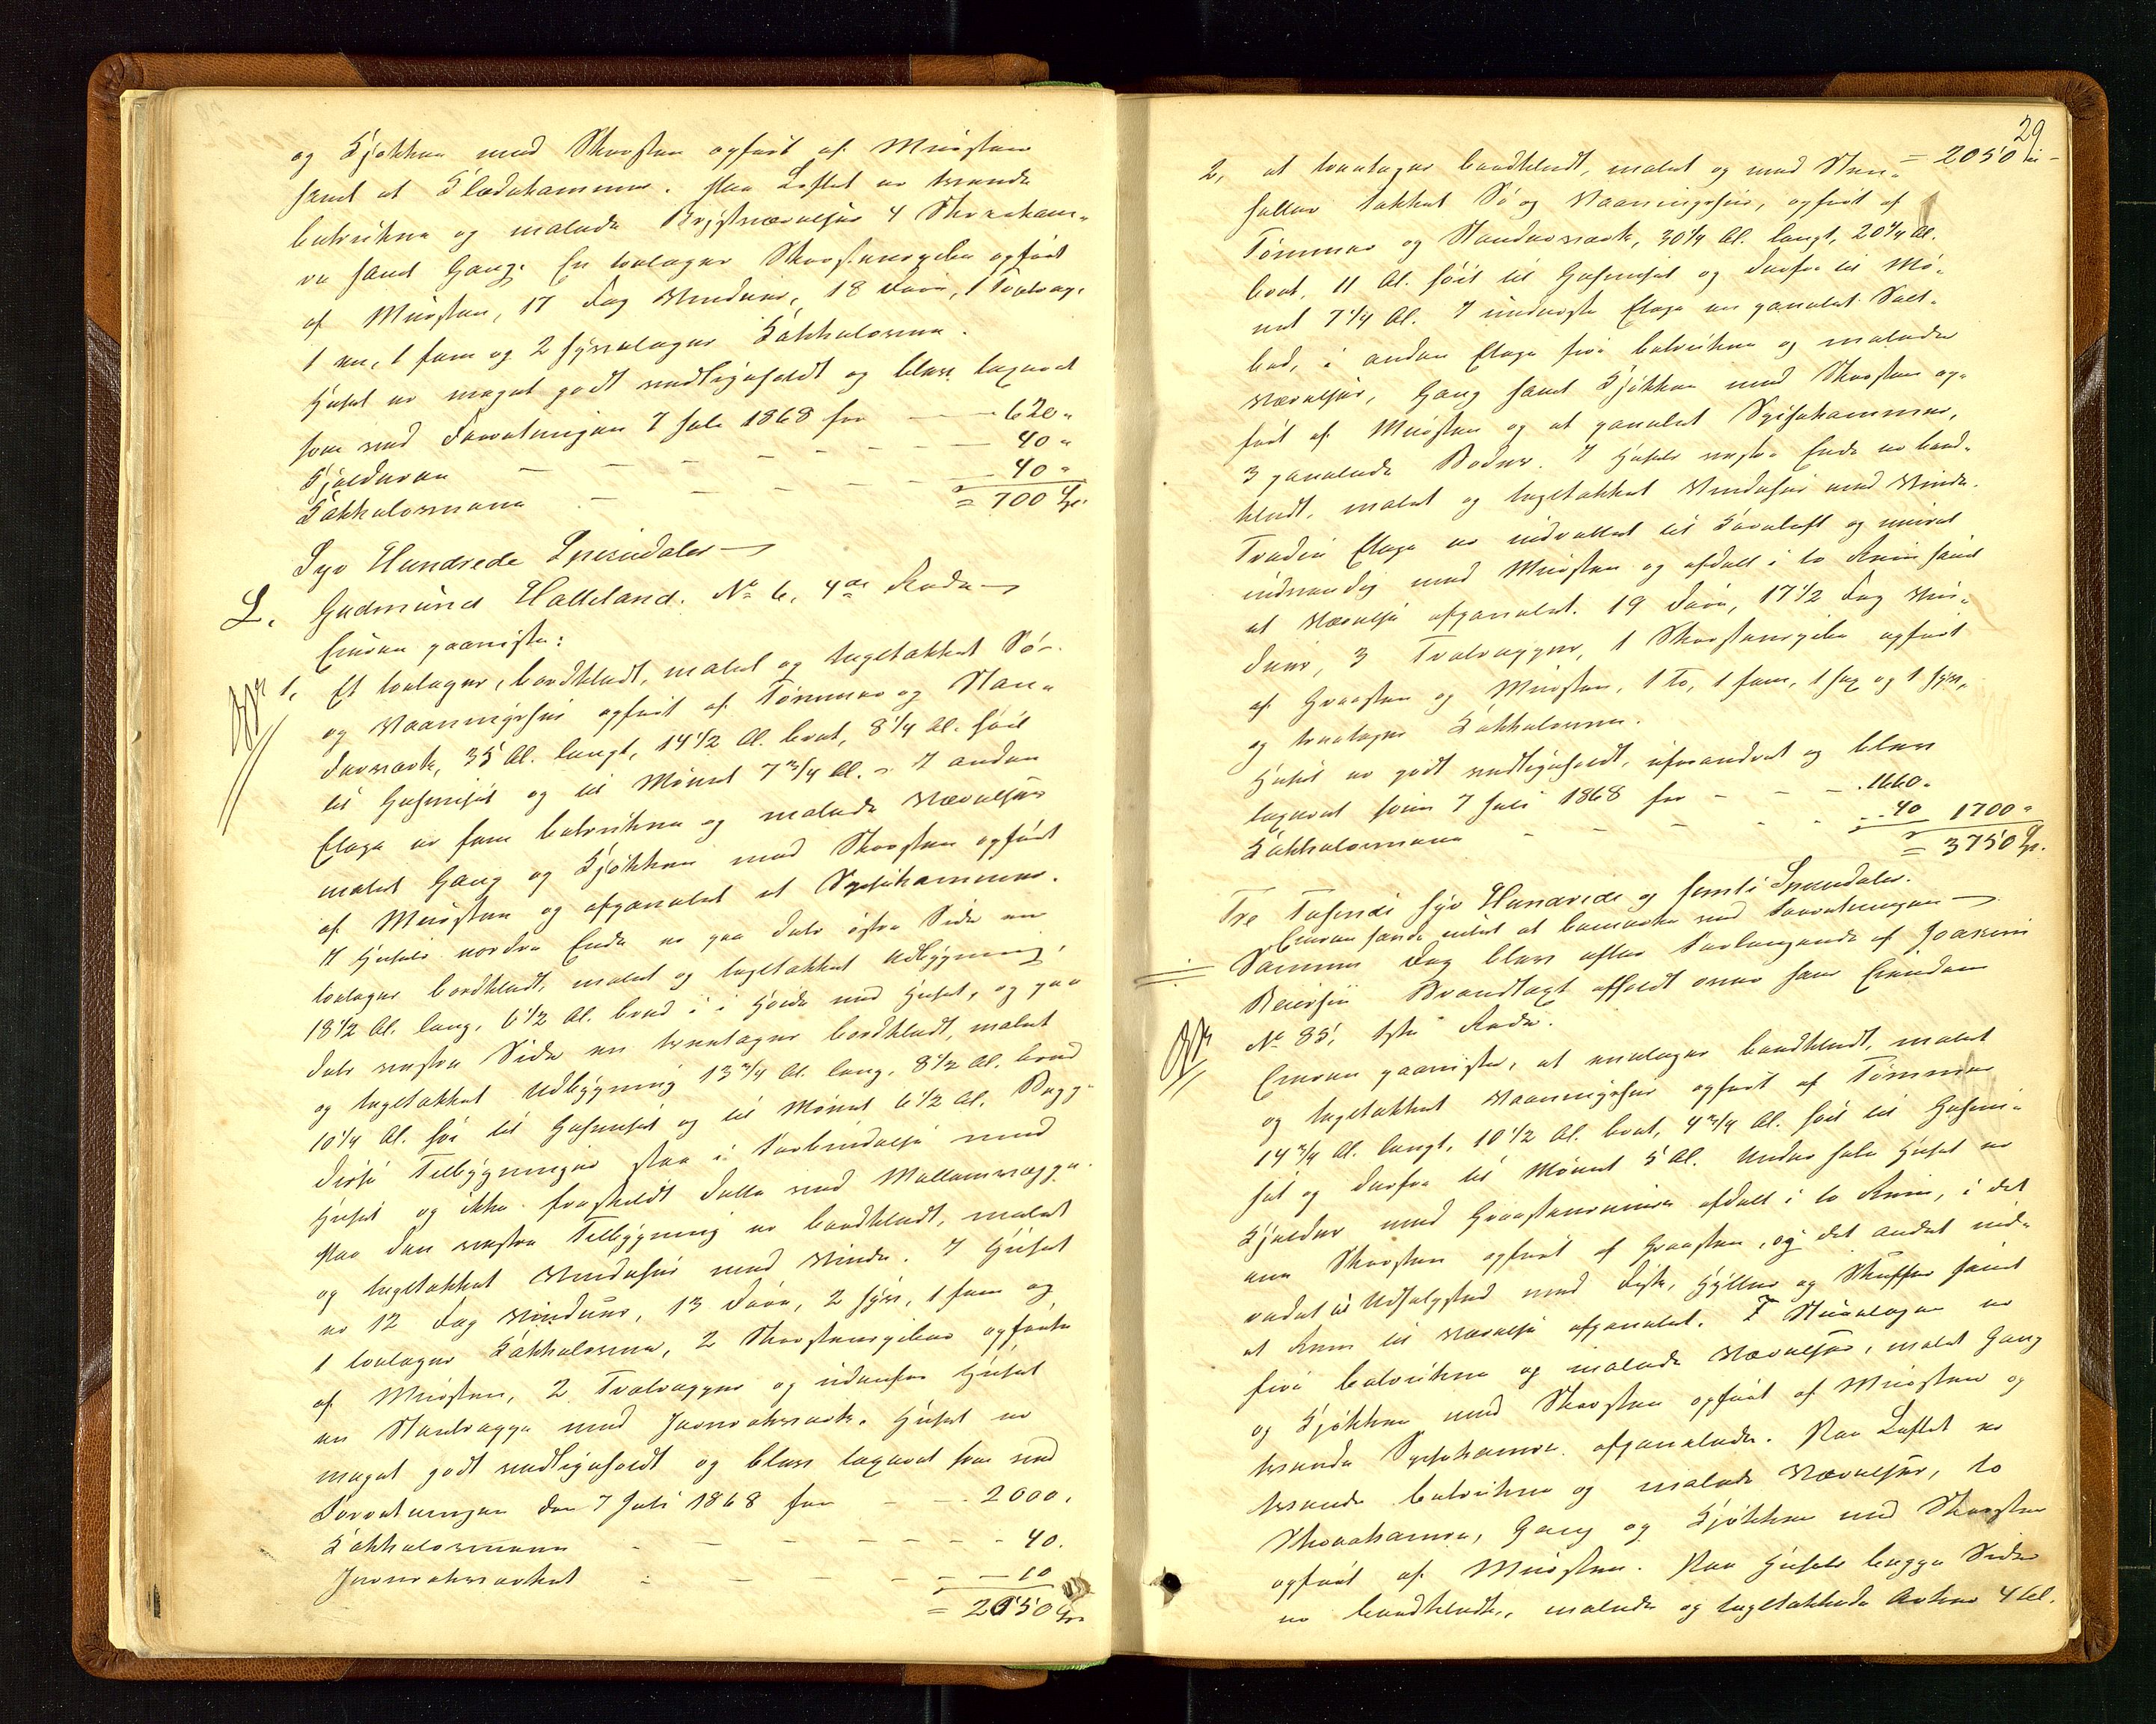 og Kjøkken med Skorsten opført af Muursten
samt et Klædekammer. Paa Loftet er tvende
betrukne og malede Brystværelser 4 Skraakam-
re samt Gang. En tvelagers Skorstenspibe opført
af Muursten, 17 Fag Vinduer, 18 Døre, 1 Trætrap.
1 en, 1 fem og 2 fyrrelagers Kakkelovne.
Huset er meget godt vedligeholdt og blev taxeret
som ved Forretningen 7 Juli 1868 for — — 620 "
Kjelderen — — — — — — 40 "
Kakkelovnene — — — — — — 40 "
= 700 Spd.
Syv Hundrede Speciedaler —
L. Gudmund Halleland. No 6, 4de Rode —
Enören paaviste:
1, Et tvelagers, bordklædt, malet og tegltækket Sø-
og Vaaningshus opført af Tømmer og Stan-
derværk, 35 Al. langt, 14 1/2 Al. bredt, 8 1/4 Al. høit
til Gesimset og til Mønet 7 3/4 Al. - I anden
Etage er fem betrukne og malede Værelser
malet Gang og Kjøkken med Skorsten opført
af Muursten og afpanelet et Spisekammer.
I Husets nordre Ende er paa dets østre Side en
tvelagers bordklædt, malet og tegltækket Udbygning,
18 1/2 Al. lang, 6 1/2 Al. bred i i Høide med Huset, og paa
dets vestre Side en trelagers bordklædt, malet
og tegltækket Udbygning 13 3/4 Al. lang, 8 1/2 Al. bred
10 1/4 Al. høi til Gesimset og til Mønet 6 1/2 Al. Begge
disse Tilbygninger staa i Forbindelse med
Huset og ikke fraskildt dette ved Mellemvægge.
Paa den vestre Tilbygning er bordklædt, malet
og tegltækket Vindehus med Vinde. I Huset
er 12 Fag Vinduer, 13 Døre, 2 fyrr, 1 fem og
1 tvelagers Kakkelovne, 2 Skorstenspiber opførte
af Muursten, 2 Trætrapper og udenfor Huset
en Stentrappe med Jernrækværk. Huset er
meget godt vedligeholdt og blev taxeret som ved
Forretningen den 7 Juli 1868 for — — 2000,
Kakkelovnene — — — — — — 40.
Jernrækværket — — — — — 10
= 2050 Spd.
29
2, et trelagers bordklædt, malet og med Sten- = 2050 "-
heller tækket Sø og Vaaningshus, opført af
Tømmer og Standerværk, 30 1/4 Al. langt, 20 1/4 Al.
bredt, 11 Al. høit til Gesimset og derfra til Mø-
net 7 1/4 Al. I underste Etage er panelet Salt-
bod, i anden Etage fire betrukne og malede
Værelser, Gang samt Kjøkken med Skorsten op-
ført af Muursten og et panelet Spisekammer,
3 panelede Boder. I Husets vestre Ende er bord-
klædt, malet og tegltækket Vindehus med Vinde.
Tredie Etage er indrettet til Kornloft og muret
indvendig med Muursten og afdelt i to Rum samt
et Værelse afpanelet. 19 Døre, 17 1/2 Fag Vin-
duer, 3 Trætrapper, 1 Skorstenspibe opført
af Graasten og Muursten, 1 to, 1 fem, 1 sex og 1 fyrr,
og trelagers Kakkelovne.
Huset er godt vedligeholdt, uforandret og blev
taxeret som 7 Juli 1868 for — — — 1660.
Kakkelovnene — — — — 40 1700 "
= 3750 Spd.
Tre Tusinde syv Hundrede og femti Speciedaler.
Enören havde intet at bemærke ved Forretningen —
Samme Dag blev efter Forlangende af Joachim
Reiersen Brandtaxt afholdt over hans Eiendom
No 85, 1ste Rode.
Enören paaviste, et enelagers bordklædt, malet
og tegltækket Vaaningshus opført af Tømmer
14 3/4 Al. langt, 10 1/2 Al. bredt, 4 3/4 Al. høit til Gesim-
set og derfra til Mønet 5 Al. Under hele Huset er
Kjelder med Graastensmure afdelt i to Rum, i det
ene Skorsten opført af Graasten, og det andet ind-
redet til Udsalgsted med Disk, Hylder og Skuffer samt
et Rum til Værelse afpanelet. I Stuelagen er
fire betrukne og malede Værelser, malet Gang
og Kjøkken med Skorsten opført af Muursten og
tvende Spisekamre afpanelede. Paa Loftet er
tvende betrukne og malede Værelser, to
Skraakamre, Gang og Kjøkken med Skorsten
opført af Muursten. Paa Husets begge Sider
er bordklædte, malede og tegltækkede Arker 4 Al.